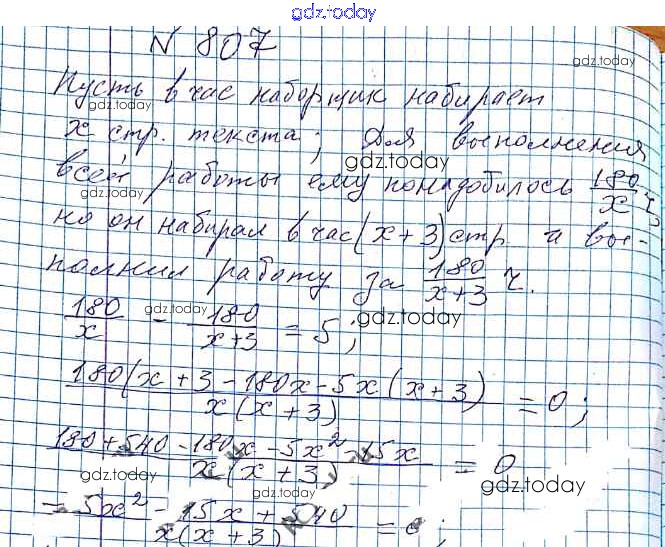 gdz.today
N 807
gdz.today
Пусть в час наборщик набирает
gdz.today
x стр. текста; Для выполнения
gdz.today
всей работы ему понадобилось 180/x ч,
gdz.today
но он набирал в час (x+3) стр. и вы-
полнил работу за 180/(x+3) ч.
gdz.today
180/x - 180/(x+3) = 5;
gdz.today gdz.today
(180(x+3 - 180x - 5x(x+3))/(x(x+3)) = 0;
(180+540 - 180x - 5x² - 15x)/(x(x+3)) = 0
gdz.today gdz.today
gdz.today
(-5x² - 15x + 540)/(x(x+3)) = 0;